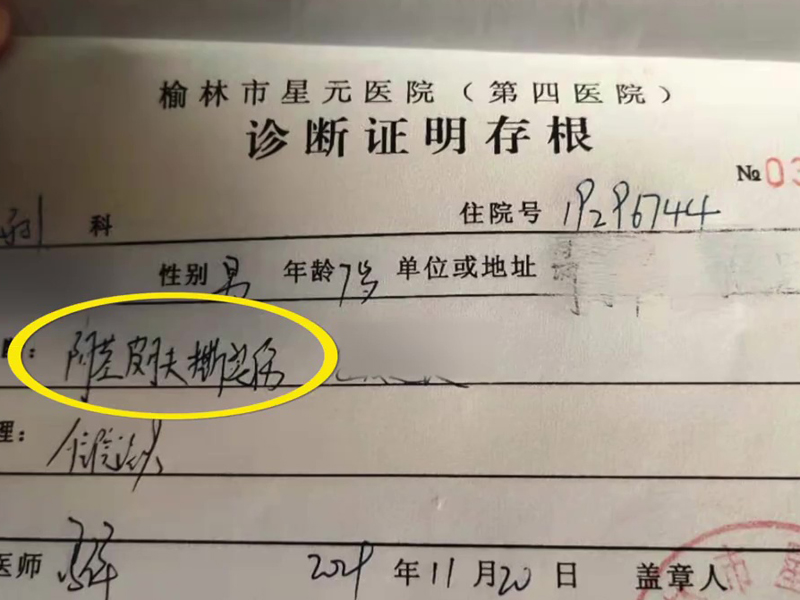 榆林市星元医院（第四医院）
诊断证明存根
№03
科 住院号 1P2P6744
性别 男 年龄 7岁 单位或地址
：阴茎皮肤撕裂伤
理：住院
医师 2021年11月20日 盖章人